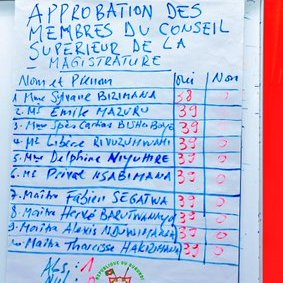 APPROBATION DES
MEMBRES DU CONSEIL
SUPERIEUR DE LA
MAGISTRATURE
Nom et Prénom Oui Non
1 Mme Sylvane BIZIMANA 38 0
2. MS Emile MAZURU 39 0
3. Mme Spès Caritas 39 0
4. Me Libère RIVUZUMWAMI 39 0
5. Mme Delphine NIYUHIRE 39 0
6. Me Prival NSABIMANA 39 0
7. Maître Fabien SEGATWA 39 0
8. Maître Hervé 39 0
9. Maître Alexis 39 0
Maître Tharcisse HAKIZIMANA 39 0
ABS: 1
REPUBLIQUE DU BURUNDI